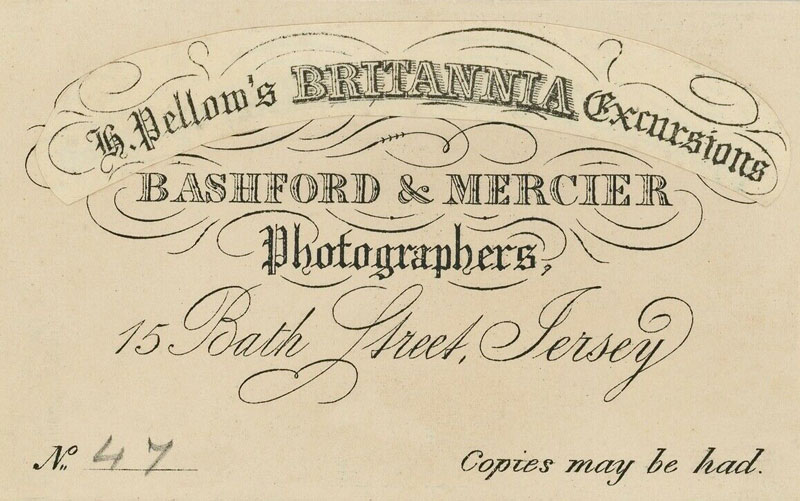 H. Pellow's BRITANNIA Excursions
BASHFORD & MERCIER
Photographers,
15 Bath Street, Jersey
No. 47
Copies may be had.